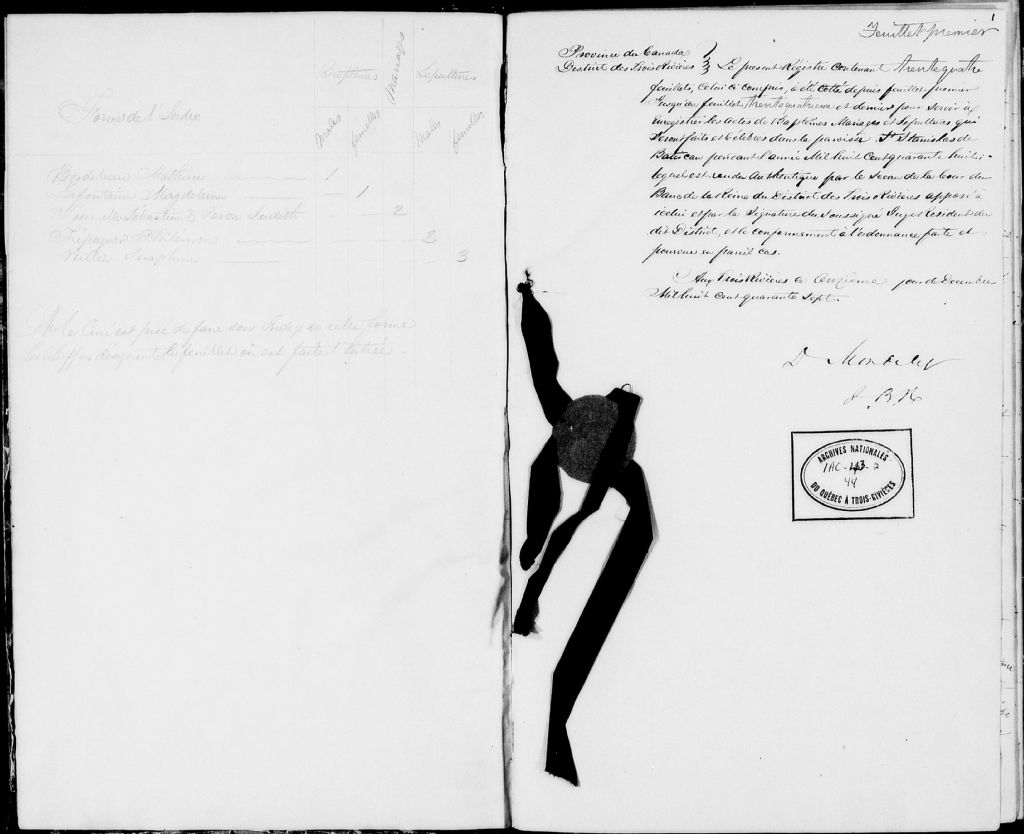 Baptêmes Mariages Sepultures
Forme de l'Index
Males femelles Males femelles
Bordeleau Mathieu 1
Lafontaine Magdeleine 1
Sebastien & 2
Philemon 2
Seraphine 3
Mr le Curé est prié de faire son Index en cette forme
les chiffres désignent le feuillet où est faite l'Entrée
1
Feuillet premier
Province du Canada
District des Trois Rivières } Le present Régistre Contenant trente quatre
feuillets, Celui ci compris, a été Côté depuis feuillet premier
Jusqu'au feuillet trente quatrieme et dernier pour servir à
enregistrer les actes de Baptêmes Mariages et Sepultures qui
Seront faits et Célébrés dans la paroisse St Stanislas de
Batiscan pendant l'année Mil huit Cent quarante huit;
lequel est rendu Authentique par le Sceau de la Cour du
Banc de la Reine du District des Trois Rivières apposé à
icelui et par la Signature du Soussigné Juge Resident du
dit District, et le conformement à l'ordonnance faite et
pourvue en pareil cas.
Aux Trois Rivières ce Onzième jour de Decembre
Mil huit Cent quarante Sept.
D Mondelet
J. B. R
ARCHIVES NATIONALES
1AC-43-A
44
DU QUÉBEC À TROIS-RIVIÈRES